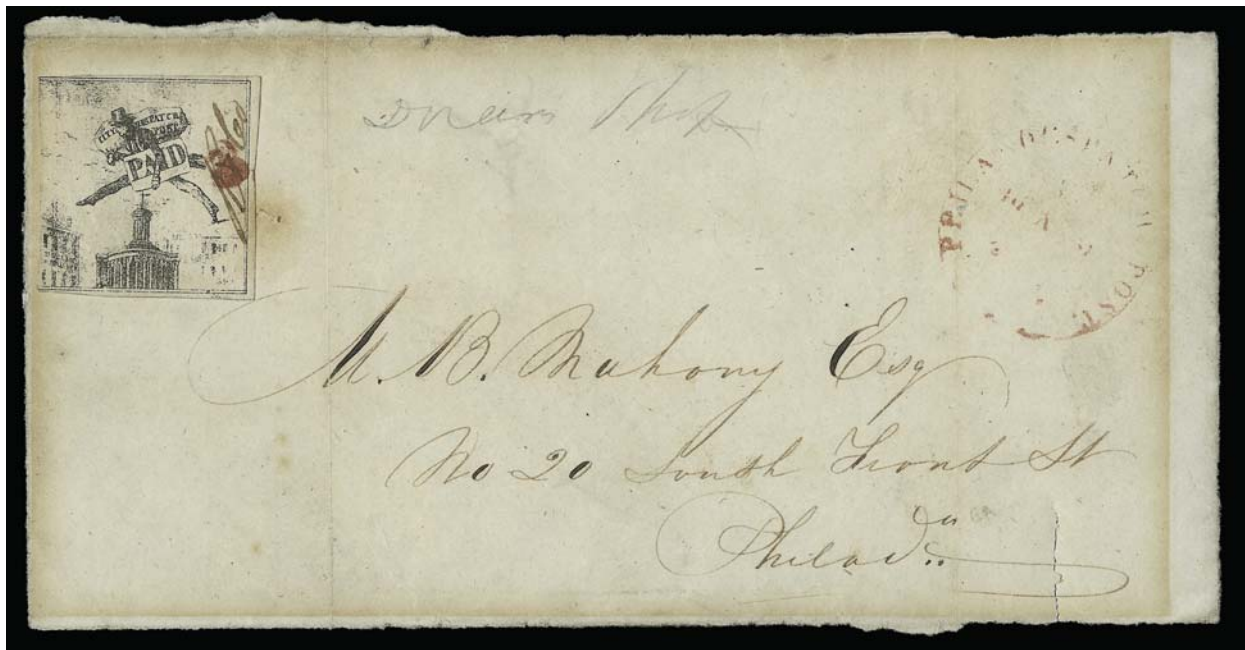 CITY DESPATCH
POST
PAID
PHILA DESPATCH POST
10 A
M. B. Mahony Esq
No 20 South Front St
Philada